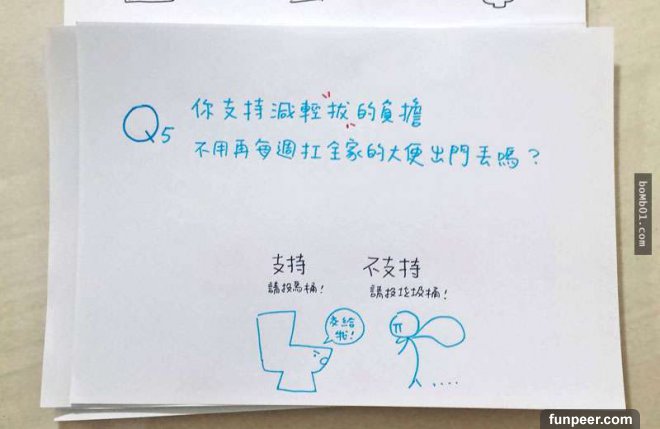 Q5
你支持減輕拔的負擔
不用再每週扛全家的大便出門丟嗎？
支持
請投馬桶！
不支持
請投垃圾桶！
交給
我！
bomb01.com
funpeer.com